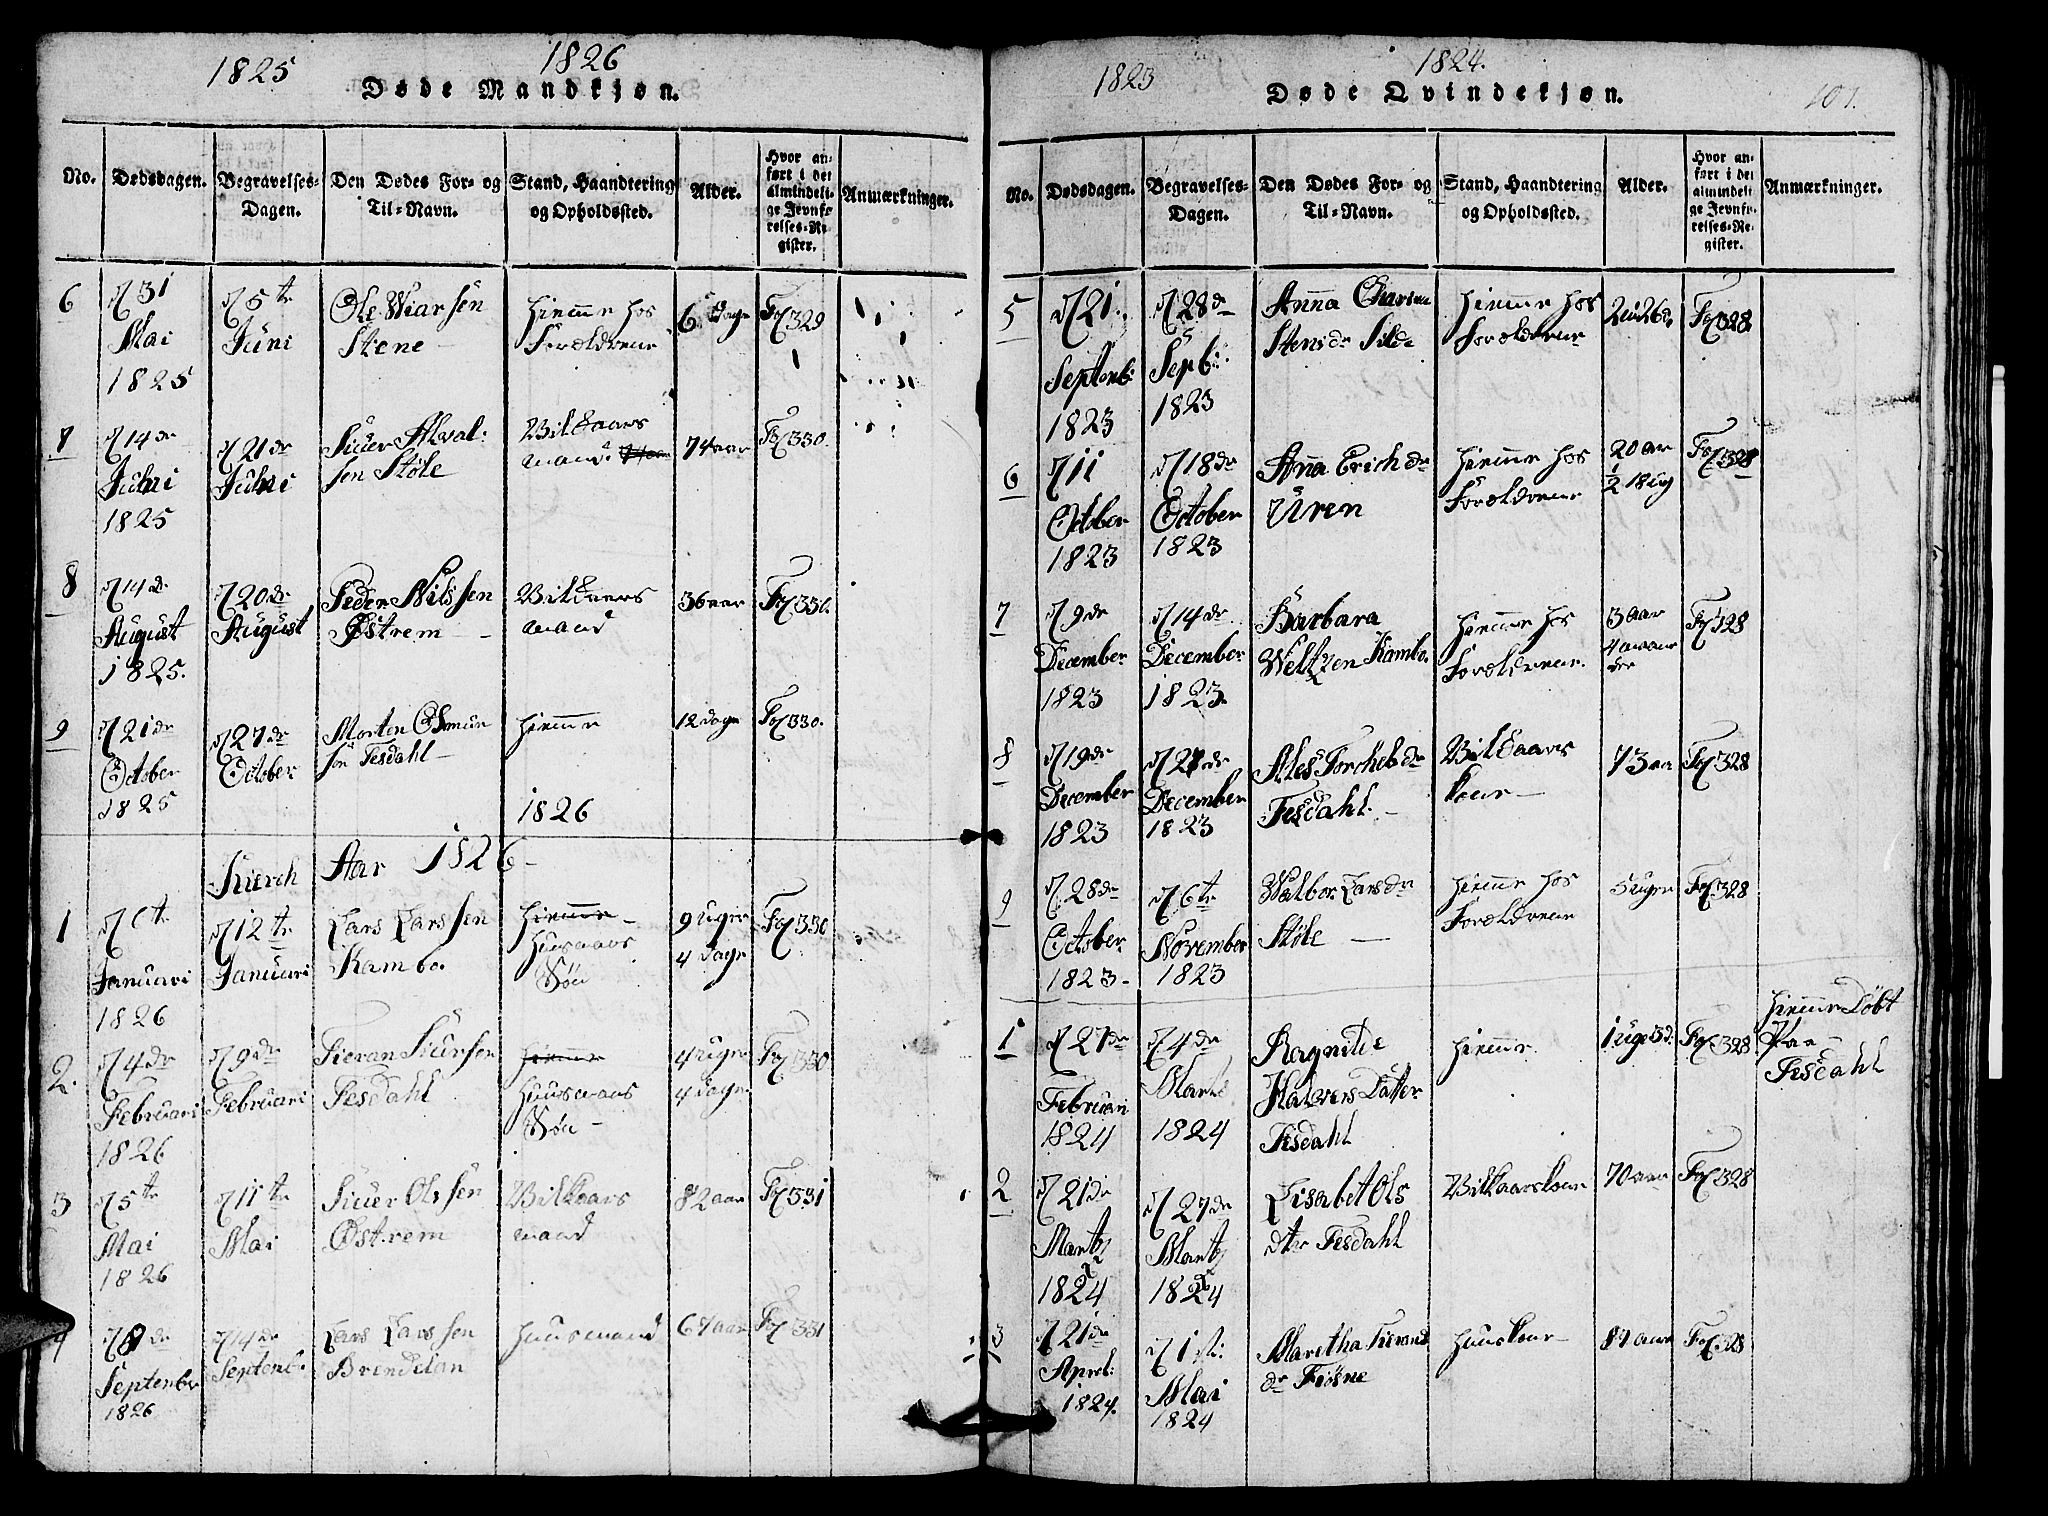 1825
1826
Døde Mandkjøn.
No.
Dødsdagen.
Begravelses-
Dagen.
Den Dødes For- og
Til-Navn.
Stand, Haandtering
og Opholdssted.
Alder.
Hvor an-
ført i det
almindeli-
ge Jevnfø-
relses-Re-
gister.
Anmærkninger.
6
31
Mai
1825
5te
Juni
Ole
Stene
hiemme hos
Forældrene
6 Dage
Fol 329
7
14de
Juni
1825
21de
Juni
Siuer
sen Støle
Vilkaars
mand
74 aar
Fol 330.
8
14de
August
1825.
20de
August
Peder Nilssen
Østrem
Vilkaars
mand
36 aar
Fol 330.
9
21de
October
1825
27de
October
Morten Osmun
søn Fesdahl
hiemme
12 Dage
Fol 330.
1826
Kierch Aar 1826
1
Januari
1826
12te
Januari
Lars Larssen
Kambo.
hiemme
Huusmans
Søn
9 Uger
4 Dage
Fol 330
2.
4de
Februari
1826
9de
Februari
Fesdahl
hiemme
Huusmans
Søn
4 Uger
4 Dage
Fol 330
3
5te
Mai
1826
11te
Mai
Siuer Olssen
Østrem
Vilkaars
mand
82 aar
Fol 331
4
September
1826
14de
Septemb.
Lars Larssen
Huusmand
Fol 331
1823
1824.
Døde Qvindekjøn.
101.
No.
Dødsdagen.
Begravelses-
Dagen.
Den Dødes For- og
Til-Navn.
Stand, Haandtering
og Opholdssted.
Alder.
Hvor an-
ført i det
almindeli-
ge Jevnfø-
relses-Re-
gister.
Anmærkninger.
5
21
Septemb:
1823
28de
Sepb:
1823
Anna
hiemme hos
Forældrene
Fol 328.
6
11
October
1823
18de
October
1823
Anna Erichdr
Uren
hiemme hos
Forældrene
20 aar
Fol 328
7
9de
December
1823
14de
December
1823.
Barbara
Weltzen Kambo.
hiemme hos
Forældrene.
3 aar
Fol 328
8
19de
December
1823
27de
December
1823
Fesdahl.
Vilkaars
kone
73 aar
Fol 328
9
28de
October
1823.
6te
November
1823
Walbor Larsdr
Støle
hiemme hos
Forældrene
5 Uger
Fol 328
1
27de
Februari
1824
4de
1824
Ragnilde
Halvers Datter
Fesdahl
hiemme
1 Uge 3 d.
Fol 328
hiemme Døbt
Paa
Fesdahl
2
21de
Martz
1824
27de
Martz
1824
Lisabet Ols
dtr Fesdahl
Vilkaarskone
70 aar
Fol 328
3
21de
Aprel:
1824.
1st:
Mai
1824
Maretha
dr Fiøsne
Huuskone
Fol 328